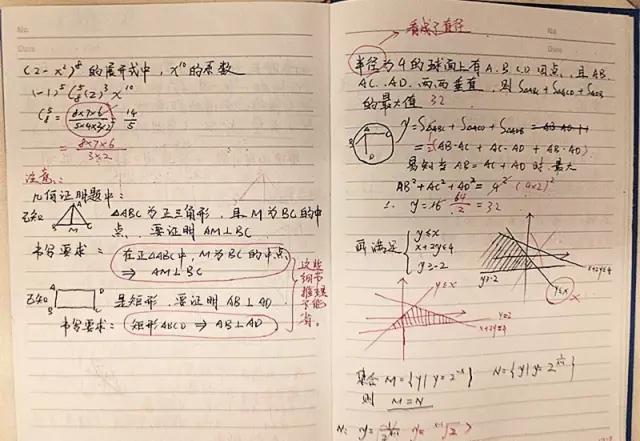 (2-x²)⁸的展开式中，x¹⁰的系数
(-1)⁵C₈⁵(2)³x¹⁰
C₈⁵ = 8×7×6 / 5×4×3×2 14/5
= 8×7×6 / 3×2
注意：
几何证明题中：
已知 A B M C △ABC为正三角形，且M为BC的中点，要证明AM⊥BC
书写要求：在正△ABC中，M为BC的中点，
⇒ AM⊥BC
已知 A B C D 是矩形，要证明AB⊥AD
书写要求：矩形ABCD ⇒ AB⊥AD
这些细节推理不能省。
看成了直径
半径为4的球面上有A.B.C.D四点，且AB.
AC.AD.两两垂直，则S△ABC+S△ACD+S△ADB
的最大值 32
y=S△ABC+S△ACD+S△ADB
=½(AB·AC+AC·AD+AB·AD)
易知当AB=AC=AD时最大
AB²+AC²+AD²=4² (4×2)²
∴ y=16 64/2=32
画满足 { y≤x
x+2y≤4
y≥-2
y≥-2
x+2y≤4
y≤x ×
y≤x
y=2
x+2y≤4
集合M={y|y=2⁻ˣ} N={y|y=2
则 M=N